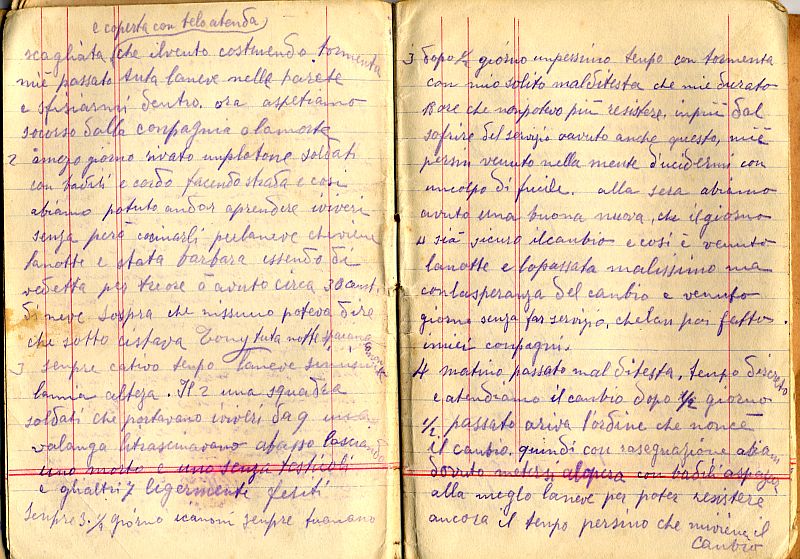 e coperta con telo atenda,
scagliata, che ilvento costruendo tormenta
mie passato tuta laneve nelle parete
e sfisiarmi dentro. ora aspetiamo
socorso dalla conpagnia o lamorte
2 àmezo giorno rivato unplotone soldati
con badili e cordo facendo strada e cosi
abiamo potuto andar aprendere iviveri
senza però cucinarli perlaneve cheviene
lanotte e stata barbara essendo di
vedetta per treore ò avuto circa 30 cent
di neve sospra che nissuno poteva dire
che sotto cistava Tony tuta notte
3 senpre cativo tenpo laneve
lamia alteza. Il 2 una squadra
soldati che portavano viveri da 9 una
valanga litrascinavano abasso lasciando
uno morto e uno senza testicoli
e ghaltri 7 ligermente feriti
Senpre 3. ½ giorno icanoni senpre tuonano
3 dopo ½ giorno unpessimo tenpo con tormenta
con mio solito malditesta che mie durato
8 ore che nonpotevo più resistere, inpiù dal
sofrire del servizio òavuto anche questo, miè
persin venuto nella mente d'ucidermi con
uncolpo di fucile. alla sera abiamo
avuto una buona nuova, che il giorno
4 sià sicuro ilcanbio e cosi è venuto
lanotte e lopassata malissimo ma
conlasperanza del canbio e venuto
giorno senza far servizio, chelan per fatto
imiei conpagni.
4 matino passato mal ditesta, tenpo discreto
e atendiamo il canbio dopo ½ giorno
½ passato ariva l'ordine che noncè
il canbio. quindi con rasegnazione abiam
dovuto metersi alopera con badili aspazar
alla meglo laneve per poter resistere
ancora il tempo persino che miviene il
canbio